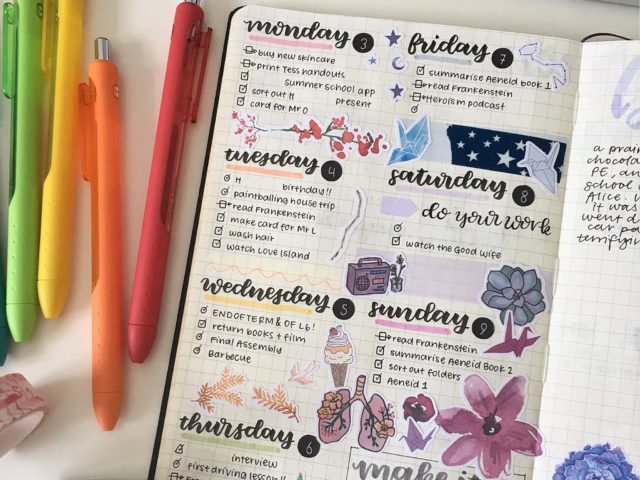 monday 3
buy new skincare
print Tess handouts
summer school app
sort out H present
card for Mr O
tuesday 4
H birthday!!
paintballing house trip
read Frankenstein
make card for Mr L
wash hair
watch Love Island
wednesday 5
END OF TERM & OF L6!
return books + film
Final Assembly
Barbecue
thursday 6
interview
first driving lesson!!
friday 7
summarise Aeneid book 1
read Frankenstein
Heroism podcast
saturday 8
do your work
watch the Good Wife
sunday 9
read Frankenstein
summarise Aeneid Book 2
sort out folders
Aeneid 1
make it
a prair
chocola
PE, an
school
Alice. W
It was
went d
car pa
terrifyin